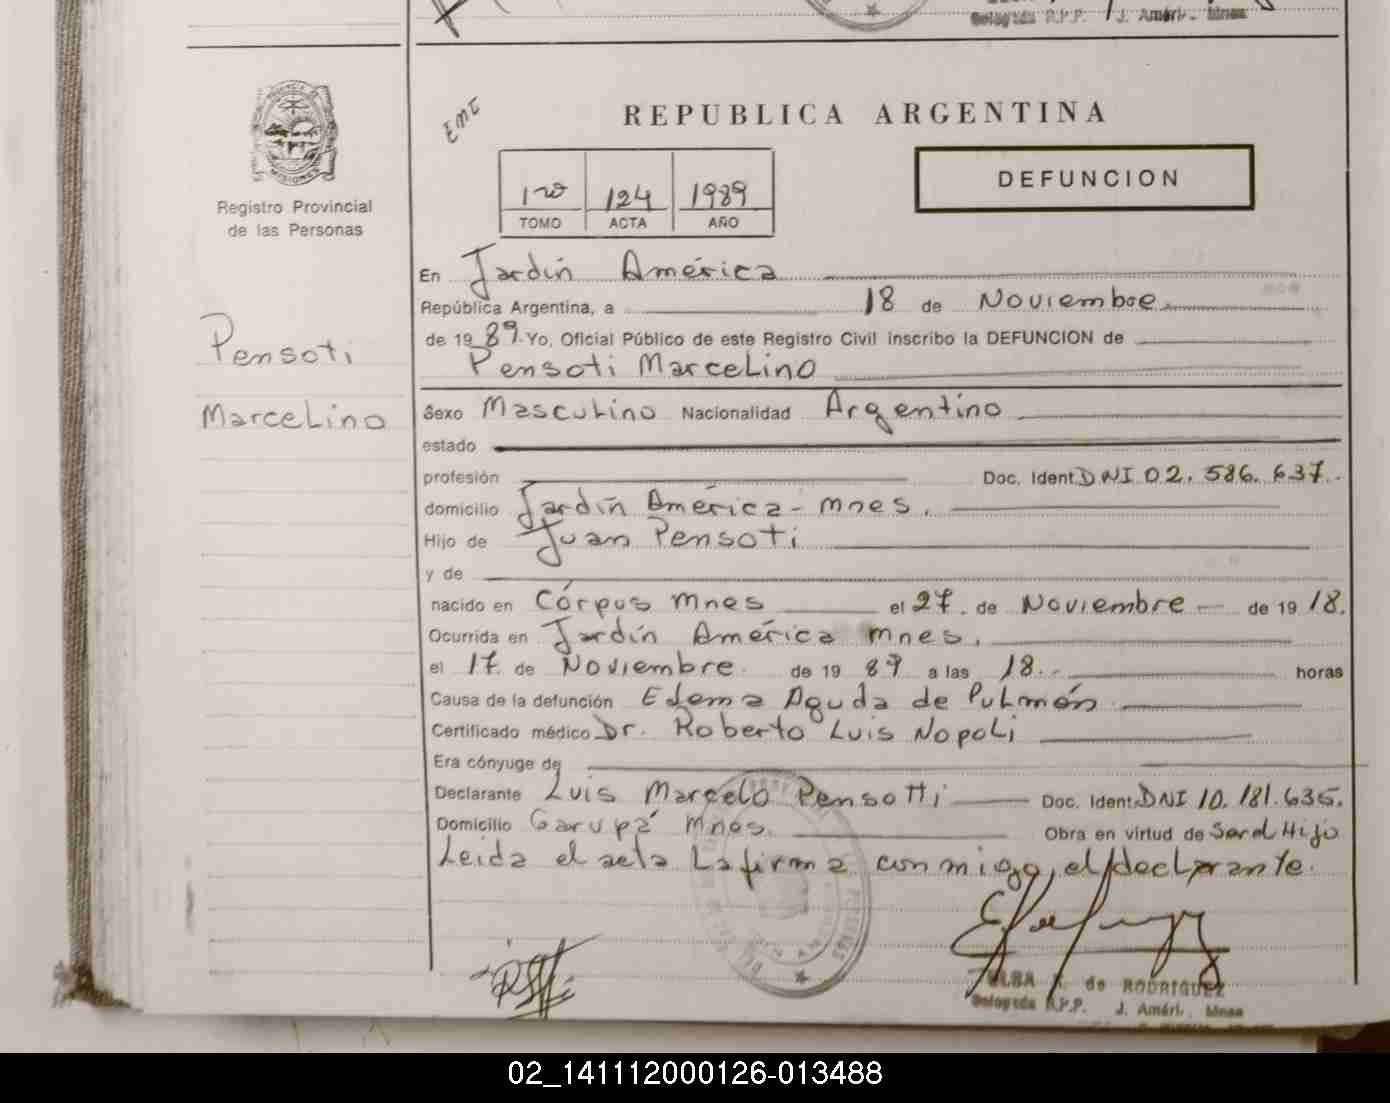 Delegada R.P.P. J. Améri. Mnes
PROVINCIA DE
MISIONES
Registro Provincial
de las Personas
EMC
REPUBLICA ARGENTINA
1ro 124 1989
TOMO ACTA AÑO
DEFUNCION
Pensoti
Marcelino
En Jardín América
República Argentina, a 18 de Noviembre
de 1989. Yo, Oficial Público de este Registro Civil inscribo la DEFUNCION de
Pensoti Marcelino
Sexo Masculino Nacionalidad Argentino
estado
profesión Doc. Ident. DNI 02.586.637.
domicilio Jardín América - mnes.
Hijo de Juan Pensoti
y de
nacido en Córpus mnes el 27. de Noviembre de 19 18.
Ocurrida en Jardín América mnes.
el 17. de Noviembre. de 19 89 a las 18. horas
Causa de la defunción Edema Aguda de Pulmón
Certificado médico Dr. Roberto Luis Nopoli
Era cónyuge de
Declarante Luis Marcelo Pensotti Doc. Ident. DNI 10.181.635.
Domicilio Garupá Mnes. Obra en virtud de Ser el Hijo
Leida el acta La firma conmigo, el declarante.
ELBA de RODRIGUEZ
Delegada R.P.P. J. Améri. Mnes
02_141112000126-013488